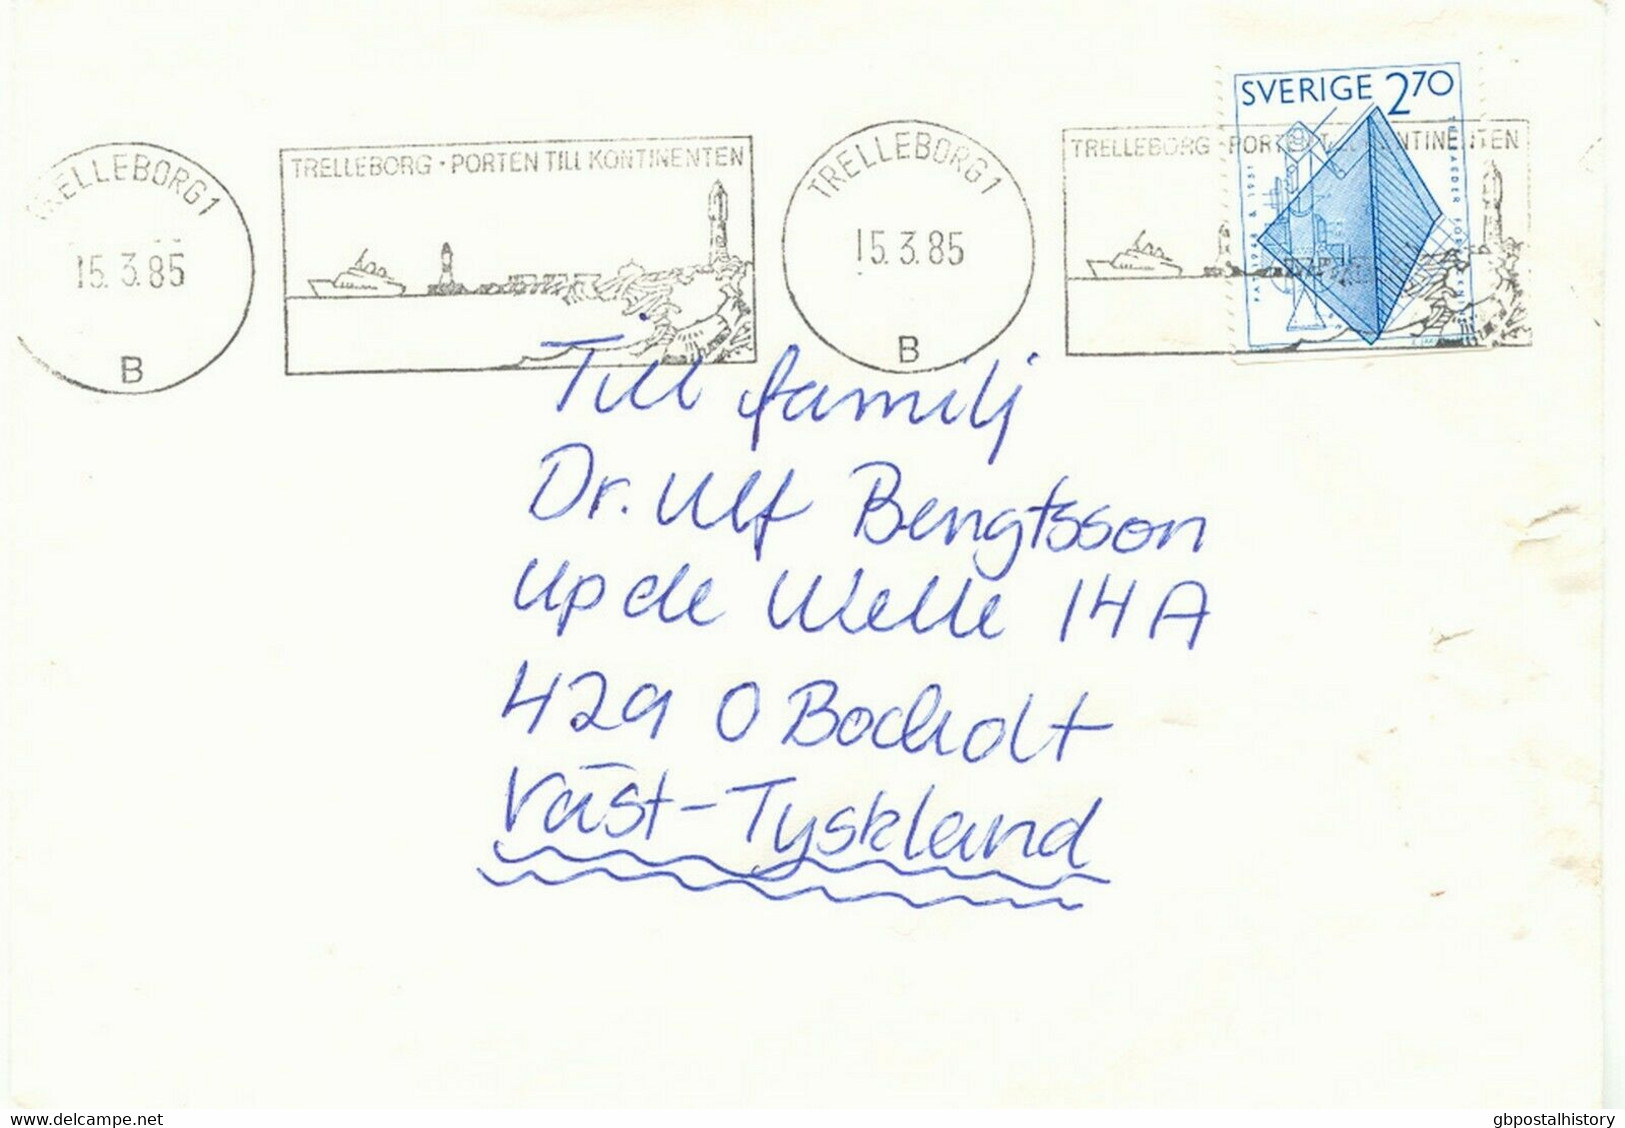 SVERIGE 270
TRELLEBORG 1
15.3.85
B
TRELLEBORG · PORTEN TILL KONTINENTEN
TRELLEBORG 1
15.3.85
B
TRELLEBORG · PORTEN TILL KONTINENTEN
Till familj
Dr. Ulf Bengtsson
Up de Welle 14A
429 0 Bocholt
Väst-Tyskland
www.delcampe.net
gbpostalhistory